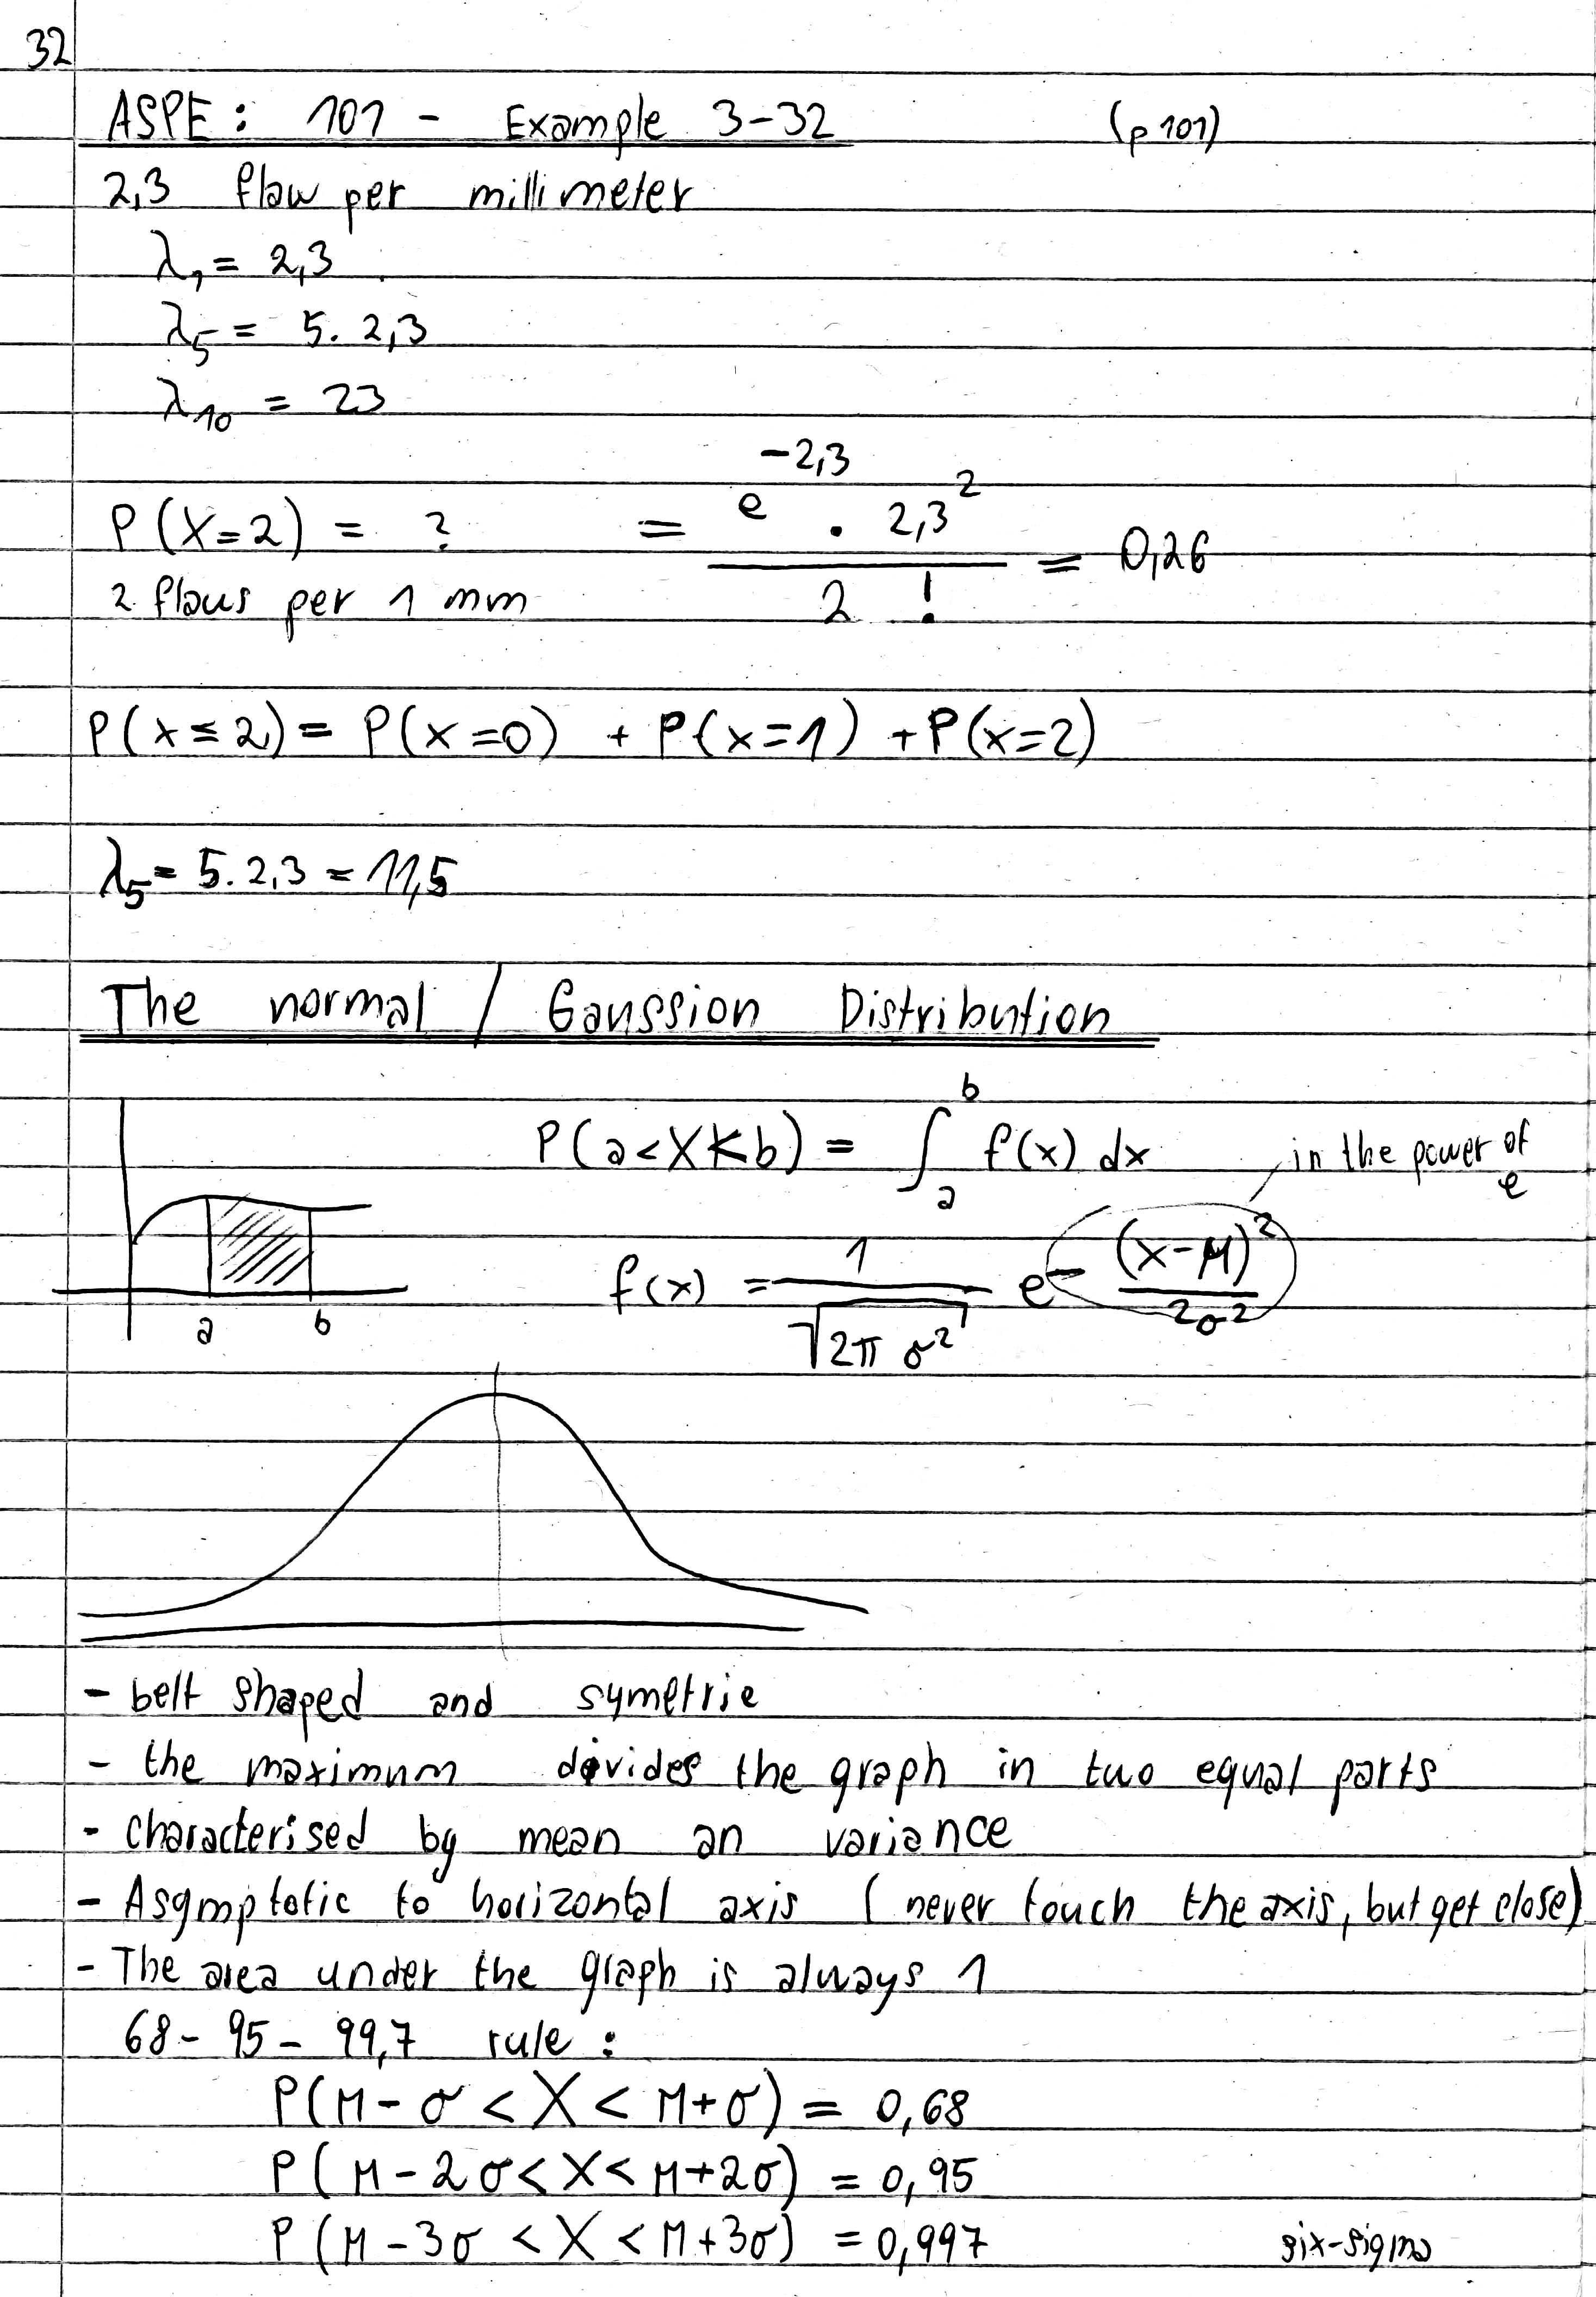 32
ASPE: 101 - Example 3-32 (p 101)
2,3 flaw per millimeter
λ₁ = 2,3
λ₅ = 5. 2,3
λ₁₀ = 23
P(X=2) = ? = e^-2,3 · 2,3² / 2! = 0,26
2 flaws per 1 mm
P(x≤2) = P(x=0) + P(x=1) + P(x=2)
λ₅ = 5. 2,3 = 11,5
The normal / Gaussion Distribution
P(a<X<b) = ∫ₐᵇ f(x) dx
in the power of e
f(x) = 1/√(2π σ²) e^-(x-μ)²/2σ²
a b
- belt shaped and symetric
- the maximum divides the graph in two equal parts
- characterised by mean an variance
- Asymptotic to horizontal axis (never touch the axis, but get close)
- The area under the graph is always 1
68 - 95 - 99,7 rule:
P(μ - σ < X < μ + σ) = 0,68
P(μ - 2σ < X < μ + 2σ) = 0,95
P(μ - 3σ < X < μ + 3σ) = 0,997 six-sigma